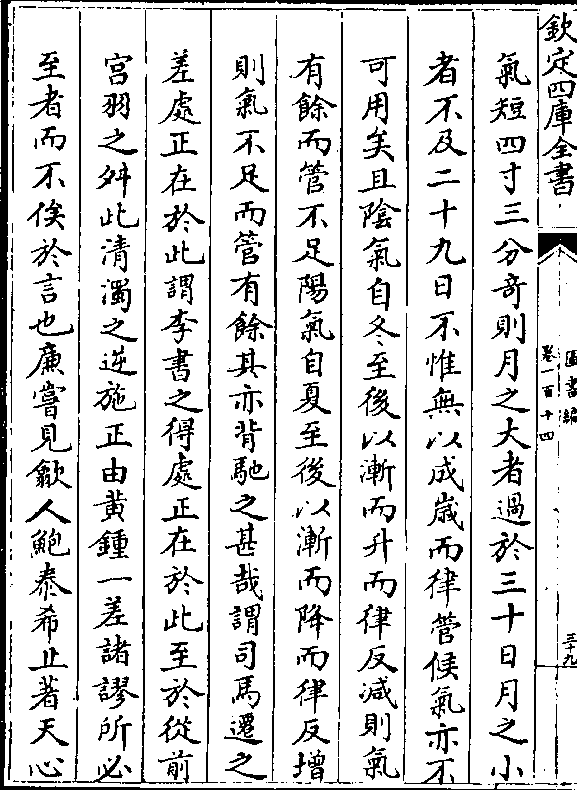 欽定四庫全書
圖書編
卷一百十四
三十九
氣短四寸三分奇則月之大者過於三十日月之小
者不及二十九日不惟無以成歳而律管候氣亦不
可用矣且隂氣自冬至後以漸而升而律反減則氣
有餘而管不足陽氣自夏至後以漸而降而律反增
則氣不足而管有餘其亦背馳之甚哉謂司馬遷之
差處正在於此謂李書之得處正在於此至於從前
宫羽之舛此清濁之逆施正由黄鍾一差諸謬所必
至者而不俟於言也廉嘗見歙人鮑泰希止著天心